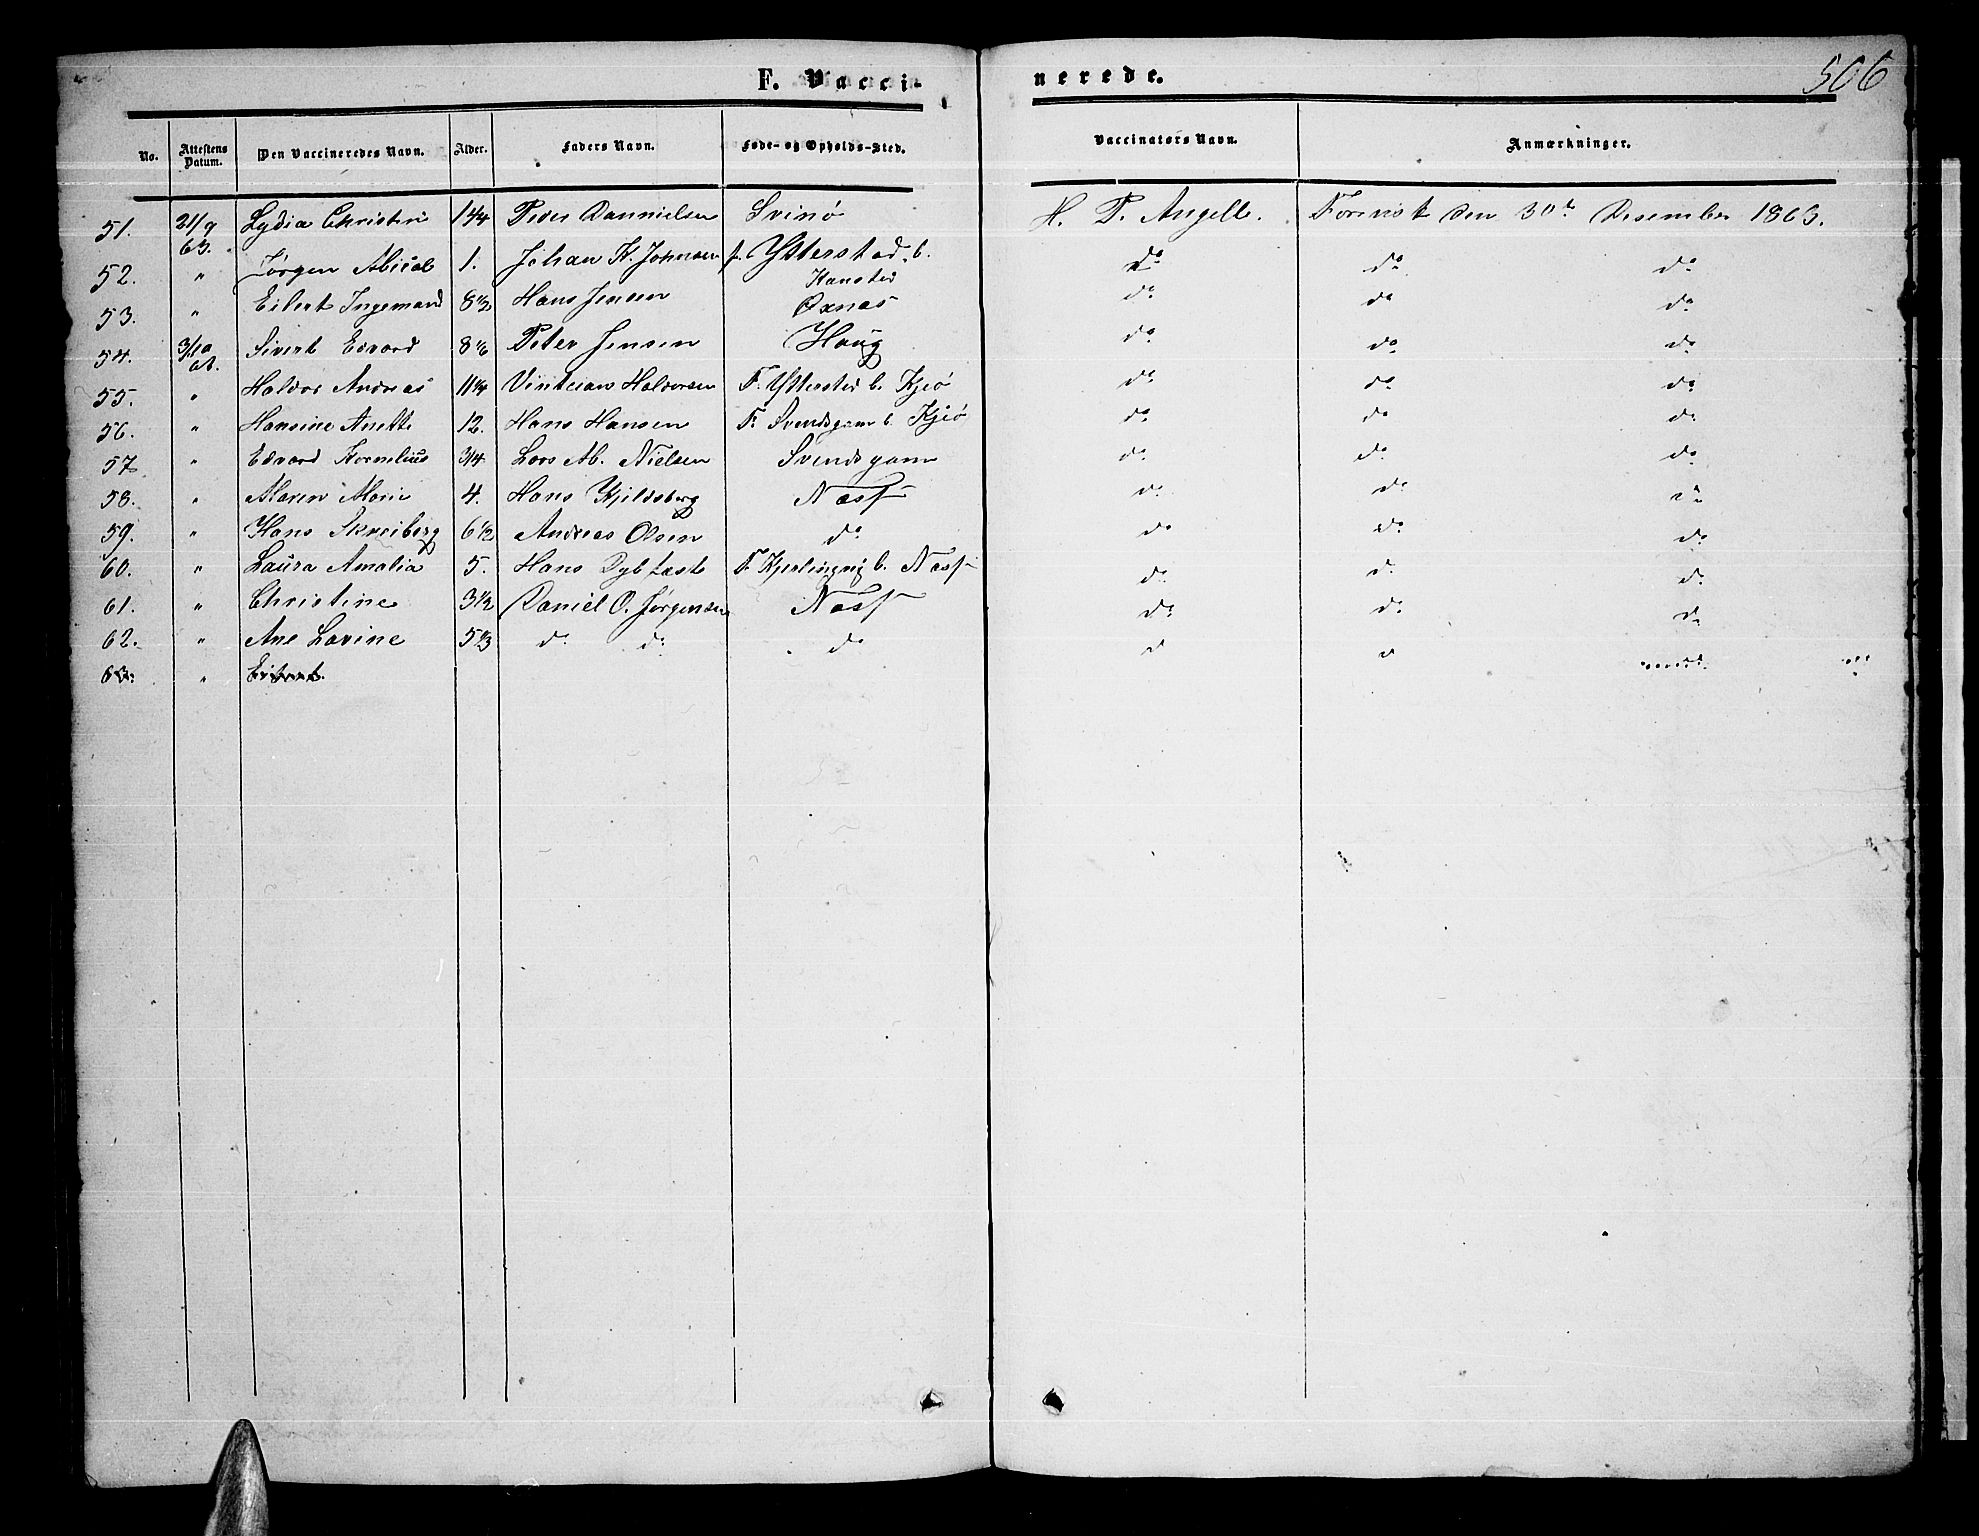 506
F. Vacci- nerede.
No. Attestens Datum. Den Vaccineredes Navn. Alder. Faders Navn. Føde- og Opholds-Sted. Vaccinators Navn. Anmærkninger.
51. 21/9 63. Lydia Christin 1 1/4 Peder Dannielsen Svinø H. P. Angell. den 30te Desember 1863.
52. " Jørgen 1. Johan K. Johnsen f. Ytterstad. b. Kansted do do do
53. " Eilert Ingemard 8 1/2 Hans Jensen Oxnæs do do do
54. 3/10 Sivert Edvard 8 1/6 Peter Jensen Haug do do do
55. " Haldor Andreas 11 1/4 Haldorsen F. Ytterstad b. Kjeø do do do
56. " Hansine Anette 12. Hans Hansen F. Svendsgam b. Kjeø do do do
57. " Edvard Kornelius 3/4 Lars Ab. Nielsen Svendsgam do do do
58. " Maren Marie 4. Hans Kjeldsberg Næss do do do
59. " Hans Skreiberg 6 1/2 Andreas Olsen do do do do
60. " Laura Amalia 5. Hans Dybfæst F. Kjerlingvig b. Næss do do do
61. " Christine 3 1/2 Daniel O. Jørgensen Næss do do do
62. " Ane Lovine 5 1/3 do do do d d
63. "